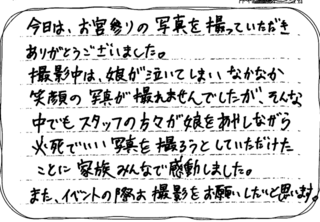 今日は、お宮参りの写真を撮っていただき
ありがとうございました。
撮影中は、娘が泣いてしまいなかなか
笑顔の写真が撮れませんでしたが、そんな
中でもスタッフの方々が娘をあやしながら
必死でいい写真を撮ろうとしていただけた
ことに家族みんなで感動しました。
また、イベントの際は撮影をお願いしたいと思います。